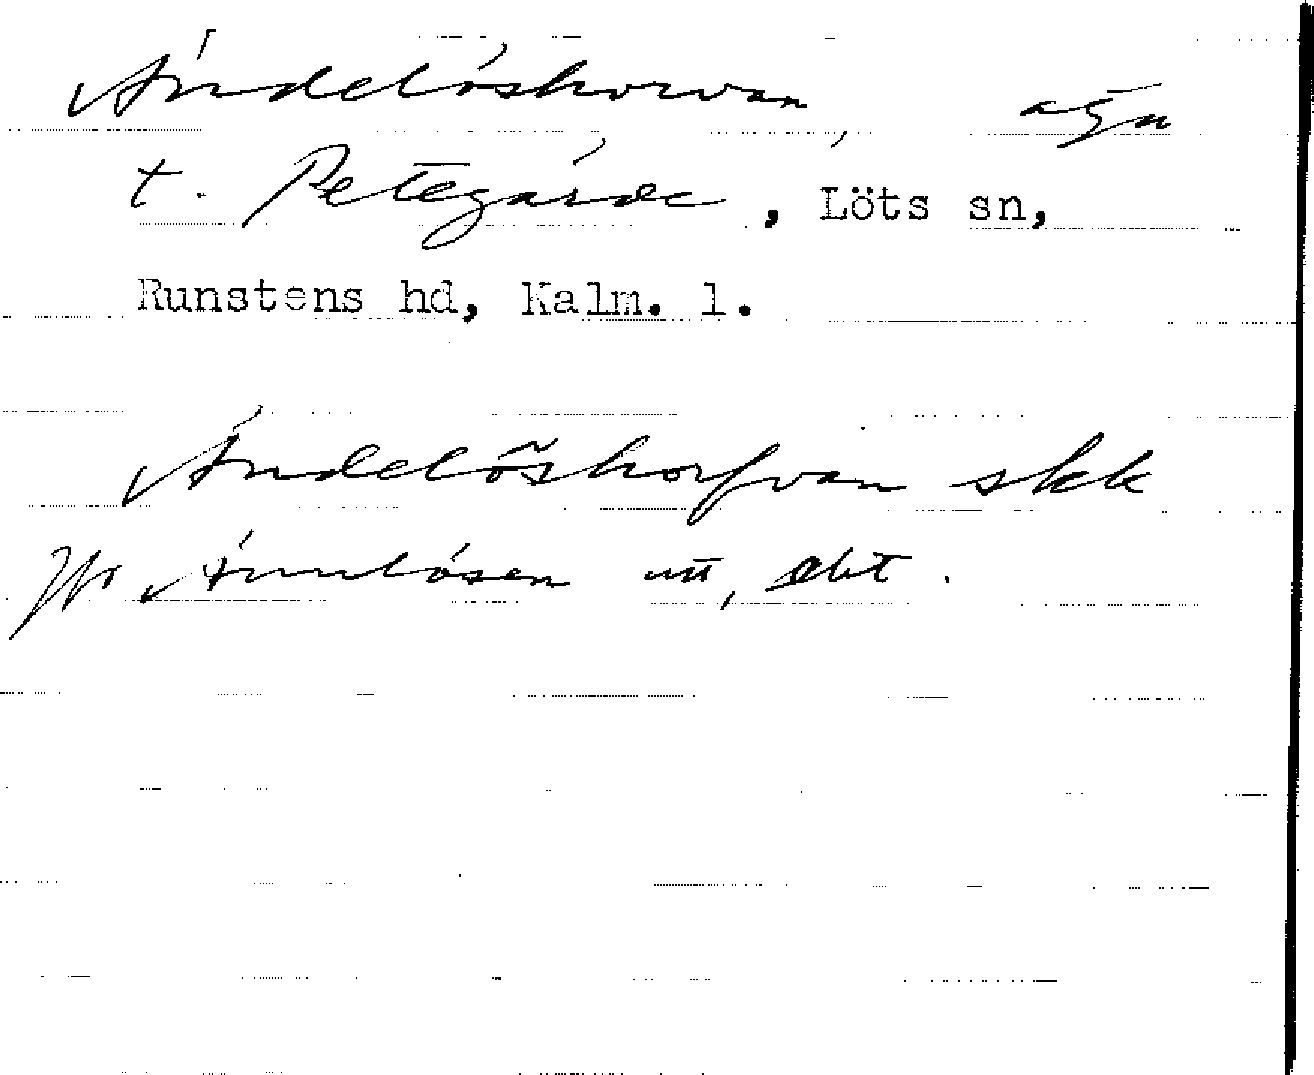 Ändelöshorvan, ägn
t. Petegärde, Löts sn,
Runstens hd, Kalm. l.
Ändelöshorfvan skk
Jfr Ännlösen utt, dbt.